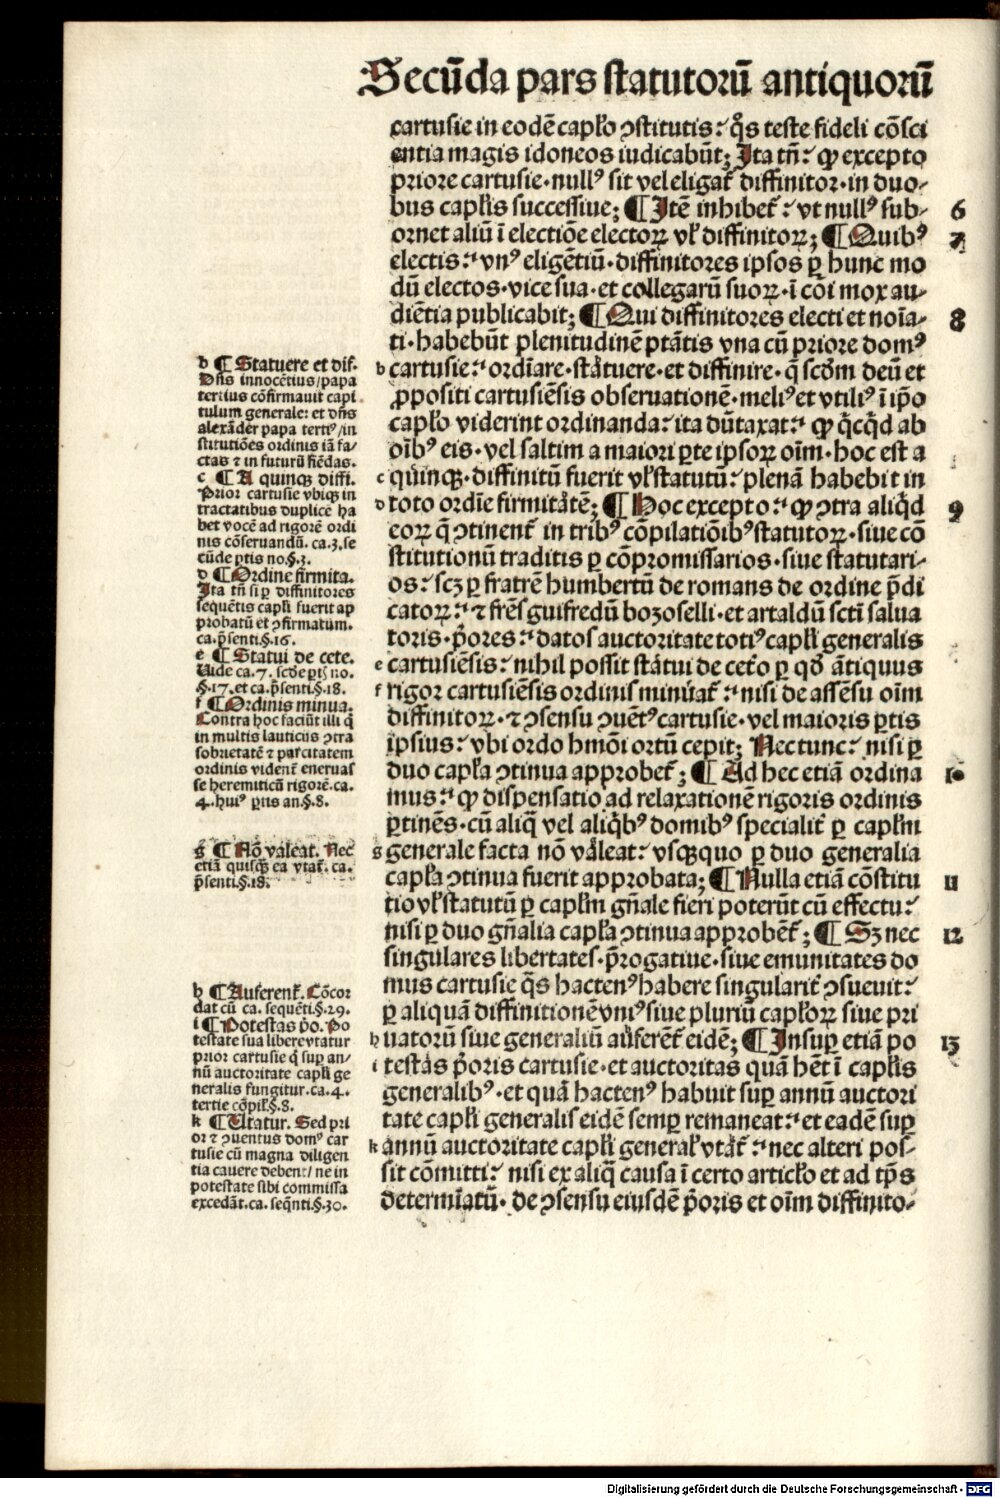 Secūda pars statutorū antiquorū
cartusie in eodē capl'o ꝯstitutis: q̊s teste fideli cōsci
entia magis idoneos iudicabūt; Ita tn̄: ꝙ excepto
priore cartusie·nullꝰ sit vel eligat᷑ diffinitor·in duo-
bus capl'is successiue; ¶ Itē inhibet᷑: vt nullꝰ sub- 6
ornet aliū ī electiōe electoꝝ vl' diffinitoꝝ; ¶ Quibꝰ 7
electis: vnꝰ eligētiū·diffinitores ipsos ꝑ hunc mo
dū electos·vice sua·et collegarū suoꝝ·ī cōi mox au-
diētia publicabit; ¶ Qui diffinitores electi et noīa- 8
ti·habebūt plenitudinē ptātis vna cū priore domꝰ
b cartusie: ordīare·stātuere·et diffinire·q̄ scd'm deū et
ꝓpositi cartusiēsis obseruationē·meliꝰ et vtiliꝰ ī ip̄o
capl'o viderint ordinanda: ita dūtaxat: ꝙ q̄cq̄d ab
oīb' eis·vel saltim a maiori ꝑte ipsoꝝ oīm·hoc est a
c quinqꝫ·diffinitū fuerit vl' statutū: plenā habebit in
d toto ordīe firmitātē; ¶ Hoc excepto: ꝙ ꝯtra aliq̄d 9
eoꝝ q̄ ꝯtinent᷑ in tribꝰ cōpilatiōibꝰ statutoꝝ·siue cō
stitutionū traditis ꝑ cōpromissarios·siue statutari-
os: scꝫ ꝑ fratrē humbertū de romans de ordine p̄di
catoꝝ: ⁊ frēs guifredū bozoselli·et artaldū scti salua
toris·p̄ores: datos auctoritate totiꝰ capl'i generalis
e cartusiēsis: nihil possit stātui de cet'o ꝑ qd' ātiquus
f rigor cartusiēsis ordinis minuat᷑: nisi de assēsu oīm
diffinitoꝝ·⁊ ꝯsensu ꝯuētꝰ cartusie·vel maioris ꝑtis
ipsius: vbi ordo hmōi ortū cepit; Nec tunc: nisi ꝑ
duo capl'a ꝯtinua approbet᷑; ¶ Ad hec etiā ordina 10
mus: ꝙ dispensatio ad relaxationē rigoris ordinis
ꝑtinēs·cū aliq̄ vel aliq̄bꝰ domibꝰ specialit᷑ ꝑ caplm
g generale facta nō vāleat: vsqꝫquo ꝑ duo generalia
capl'a ꝯtinua fuerit approbata; ¶ Nulla etiā cōstitu 11
tio vl' statutū ꝑ caplm gn̄ale fieri poterūt cū effectu:
nisi ꝑ duo gn̄alia capl'a ꝯtinua approbēt᷑; ¶ Sꝫ nec 12
singulares libertates·p̄rogatiue·siue emunitates do
mus cartusie q̄s hactenꝰ habere singularit᷑ ꝯsueuit:
ꝑ aliquā diffinitionē vniꝰ siue pluriū capl'oꝝ siue pri
h uatorū siue generaliū auferēt᷑ eidē; ¶ Insuꝑ etiā po 13
i testās p̄oris cartusie·et auctoritas quā hēt ī capl'is
generalibꝰ·et quā hactenꝰ habuit suꝑ annū auctori
tate capl'i generalis eidē semꝑ remaneat: et eadē suꝑ
k annū auctoritate capl'i general' vtāt᷑: nec alteri pos-
sit cōmitti: nisi ex aliq̄ causa ī certo articl'o et ad tp̄s
determīatū·de ꝯsensu eiusdē p̄oris et oīm diffinito-
b ¶ Statuere et dif.
Dn̄s innocētius/papa
tertius cōfirmauit capi
tulum generale: et dn̄s
alexāder papa tertꝰ/in
stitutiōes ordinis iā fa/
ctas ⁊ in futurū fiēdas.
c ¶ A quinqꝫ diffi.
Prior cartusie vbiqꝫ in
tractatibus duplicē ha
bet vocē ad rigorē ordi
nis cōseruandū. ca.3.se
cūde ꝑtis no.§.3.
d ¶ Ordine firmita.
Ita tn̄ si ꝑ diffinitores
sequētis capl'i fuerit ap
probatū et ꝯfirmatum.
ca.p̄senti.§.16.
e ¶ Statui de cete.
Uide ca.7. scd'e ꝑtis no.
§.17.et ca.p̄senti.§.18.
f ¶ Ordinis minua.
Contra hoc faciūt illi q̄
in multis lauticiis ꝯtra
sobrietatē ⁊ parcitatem
ordinis vident᷑ eneruas
se heremiticū rigorē.ca.
4.huiꝰ ꝑtis an.§.8.
g ¶ Nō valeat. Nec
etiā quisqꝫ ea vtat᷑. ca.
p̄senti.§.18.
h ¶ Auferent᷑. Cōcor
dat cū ca. sequēti.§.29.
i ¶ Potestas p̄o. Po
testate sua libere vtatur
prior cartusie q̄ suꝑ an/
nū auctoritate capl'i ge
neralis fungitur.ca.4.
tertie cōpil'.§.8.
k ¶ Utatur. Sed pri
or ⁊ ꝯuentus domꝰ car
tusie cū magna diligen
tia cauere debent/ne in
potestate sibi commissa
excedāt.ca. seq̄nti.§.30.
Digitalisierung gefördert durch die Deutsche Forschungsgemeinschaft - DFG